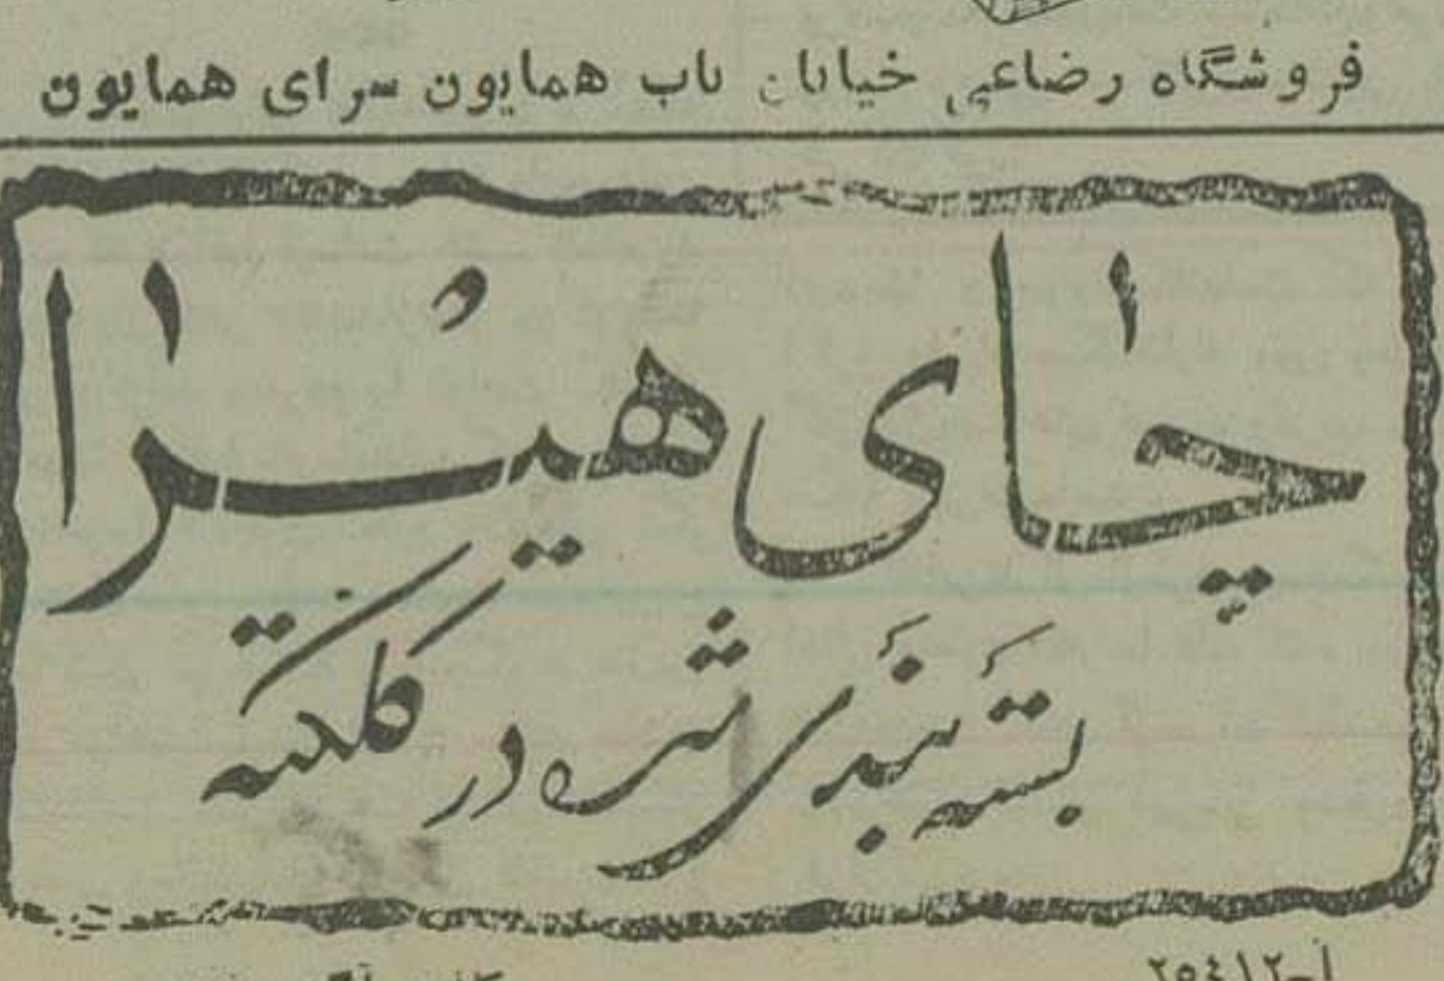 فروشگاه رضاعی خیابان باب همایون سرای همایون
چای هیرا
بسته بندی شده در کلکته
۲۵۴۱۲